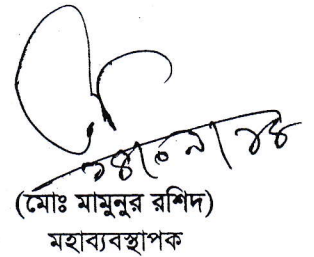 (মোঃ মামুনুর রশিদ)
মহাব্যবস্থাপক